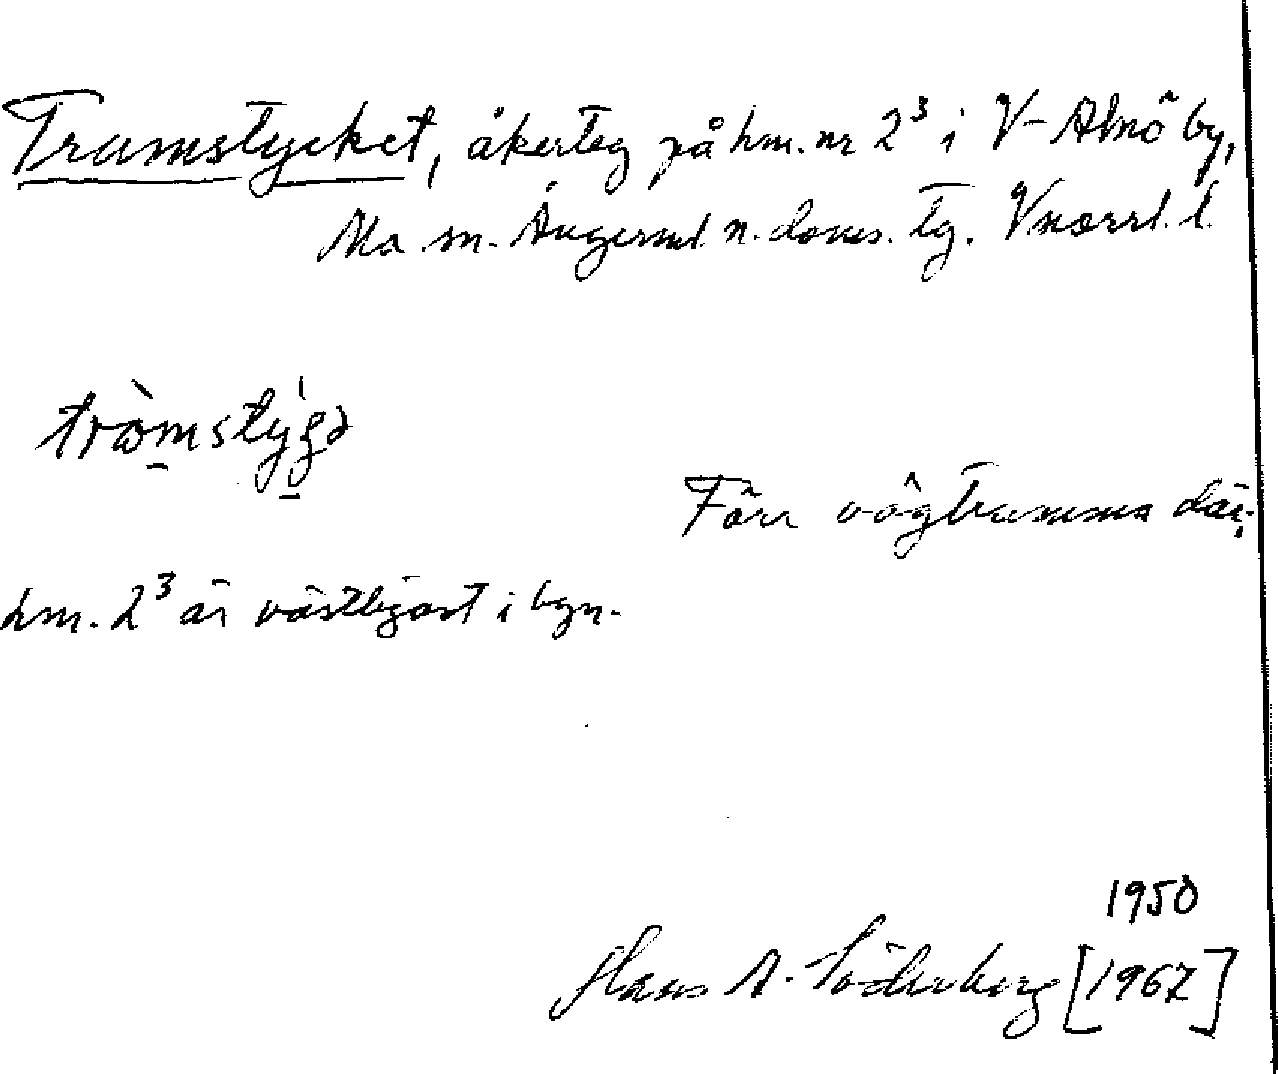 Trumstycket, åkerteg på hm. nr 2³ i V-Alnö by,
Ma sn. Ångerml. n. doms. tg. Vnorrl. l.
tròmstýgə
Förr vägtrumma där;
hm. 2³ är västligast i byn.
1950
Hans A. Söderberg [1967]